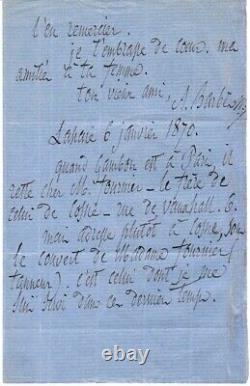 l'en remercier.
je t'embrasse de coeur. ma
amitiés à ta femme.
ton vieux ami, A. Barbès
Lahaie 6 janvier 1870.
quand Gambon est à Paris, il
reste chez Mr fournier - le frère de
celui de Cosne - rue de Vauxhall. 6.
mais adresse plutôt à Cosne, sous
le couvert de Madame fournier (
tanneur). c'est celui dont je me
suis servi dans ces derniers temps.